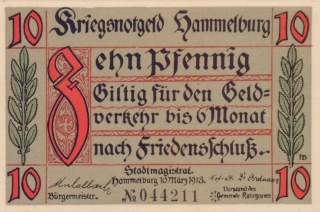 10 Kriegsnotgeld Hammelburg 10
Zehn Pfennig
Giltig für den Geld-
verkehr bis 6 Monat
nach Friedensschluß.
Stadtmagistrat
Hammelburg 10. März 1918.
Bürgermeister. Vorstand des
10 № 044211 10